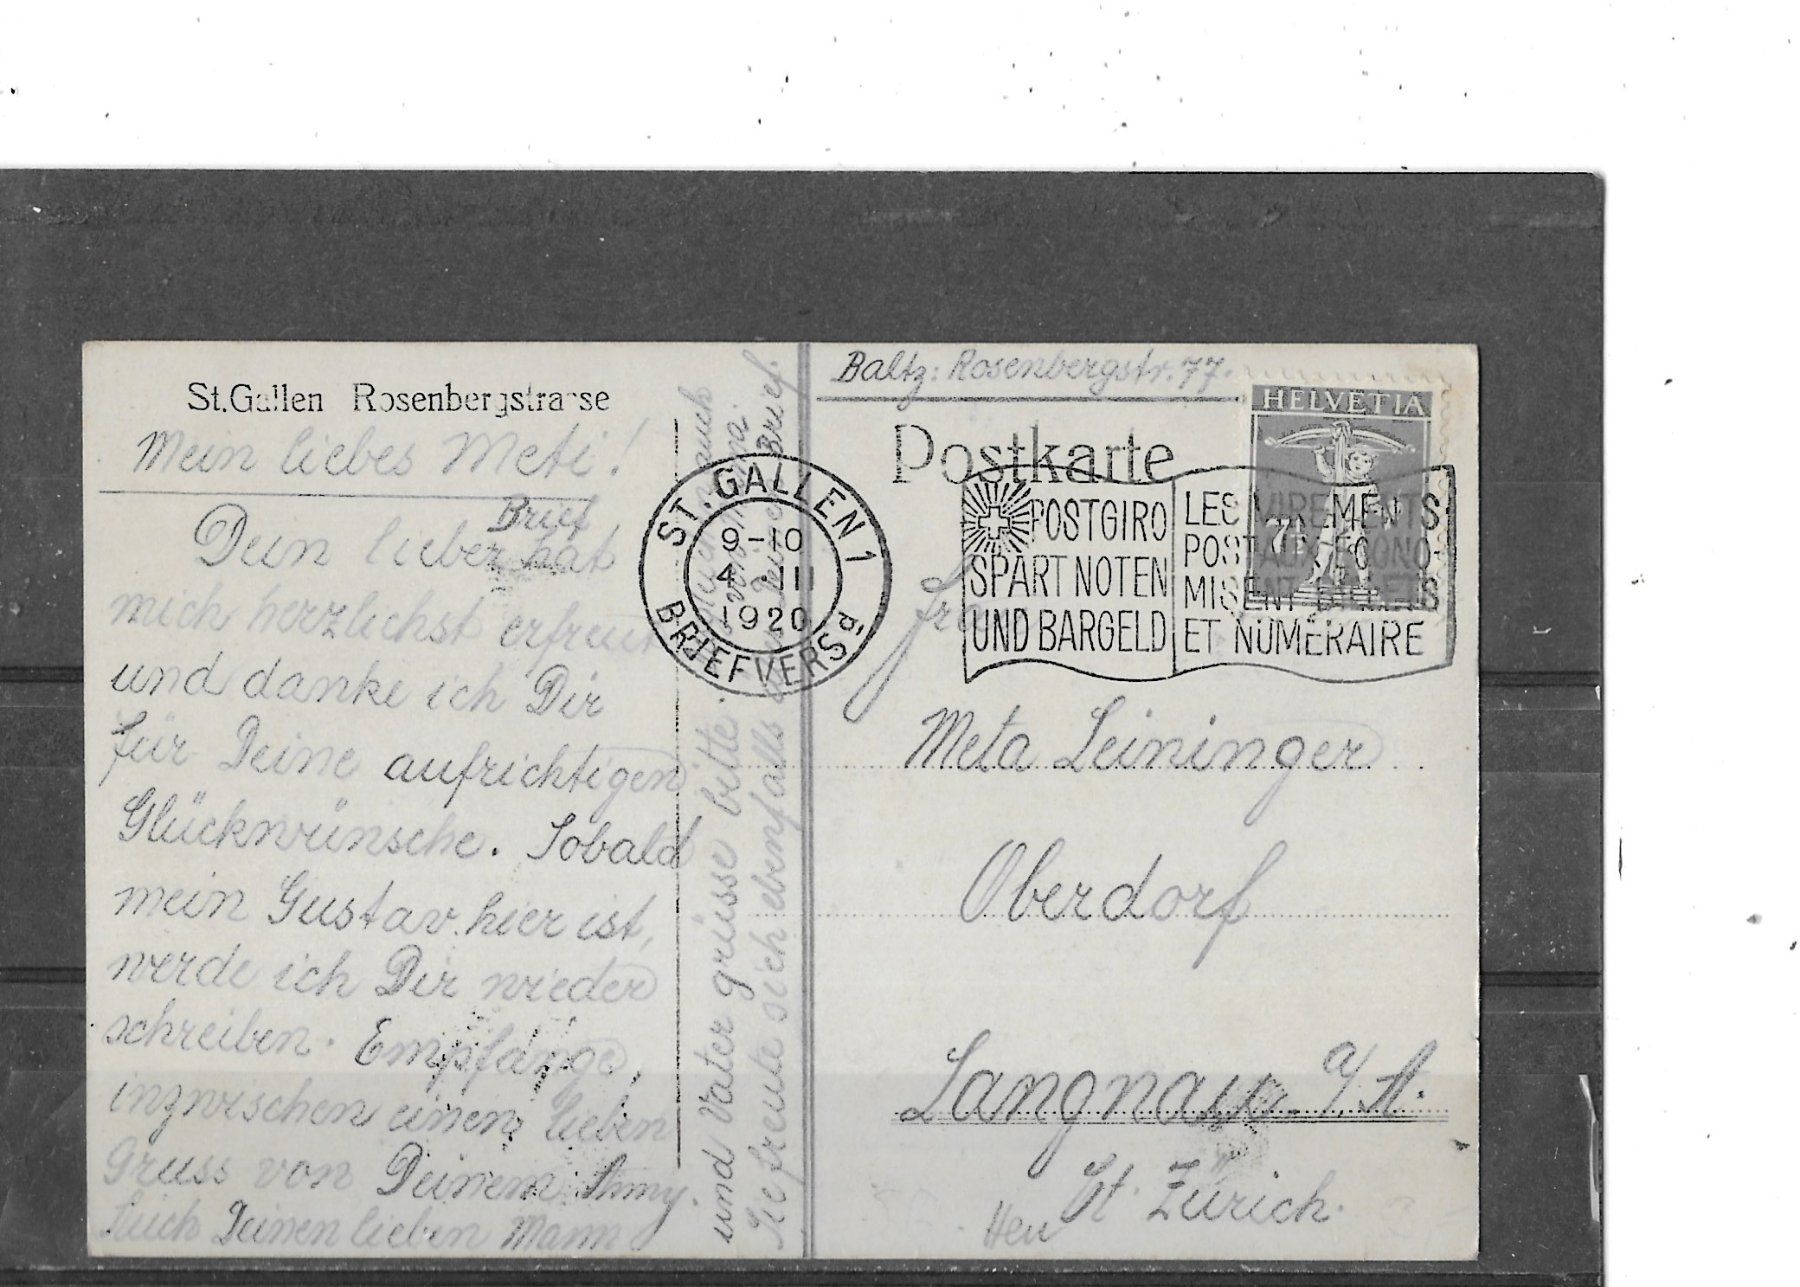 St.Gallen Rosenbergstrasse
Mein liebes Meti!
Dein lieber Brief hat
mich herzlichst erfreut
und danke ich Dir
für Deine aufrichtigen
Glückwünsche. Sobald
mein Gustav hier ist,
werde ich Dir wieder
schreiben. Empfange,
inzwischen einen lieben
Gruss von Deinem Anny.
Auch Deinen lieben Mann
und Vater grüsse bitte auch
Sie freute sich ebenfalls Brief.
ST. GALLEN 1
9-10
4 II
1920
BRIEFVERSd
Baltz: Rosenbergstr. 77.
Postkarte
HELVETIA
7½
POSTGIRO
SPART NOTEN
UND BARGELD
LES VIREMENTS
POSTAUX ECONO-
MISENT BILLETS
ET NUMÉRAIRE
Frau
Meta Leininger
Oberdorf
Langnau a/A.
Kt. Zürich.